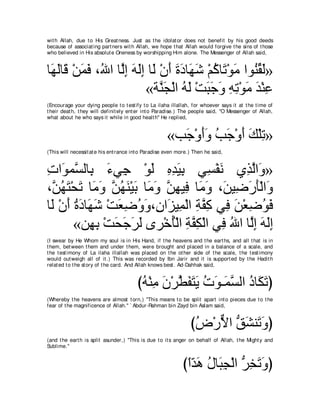 with Allah, due to His Greatness. Just as the idolator does not benefit by his good deeds
because of associating partners with Allah, we hope that Allah would forgive the sins of those
who believed in His absolute Oneness by worshipping Him alone. The Messenger of Allah said,
«لَقِّنُوا مَوْتَاكُمْ شَهَادَةَ أَنْ لَا إِلَهَ إِلَّا اللهُ، فَمَنْ قَالَهَا
عِنْدَ مَوْتِهِ وَجَبَتْ لَهُ الْجَنَّة»
(Encourage your dying people to testify to La ilaha illallah, for whoever says it at the time of
their death, they will definitely enter into Paradise.) The people said, "O Messenger of Allah,
what about he who says it while in good health'' He replied,
«تِلْكَ أَوْجَبُ وَأَوْجَب»
(This will necessitate his entrance into Paradise even more.) Then he said,
«وَالَّذِي نَفْسِي بِيَدِهِ لَوْ جِيءَ بِالسَّمَاوَاتِ
وَالْأَرَضِينَ، وَمَا فِيهِنَّ وَمَا بَيْنَهُنَّ وَمَا تَحْتَهُنَّ،
فَوُضِعْنَ فِي كِفَّةِ الْمِيزَانِ،وَوُضِعَتْ شَهَادَةُ أَنْ لَا
إِلَهَ إِلَّا اللهُ فِي الْكِفَّةِ الْأُخْرَى لَرَجَحَتْ بِهِن»
(I swear by He Whom my soul is in His Hand, if the heavens and the earths, and all that is in
them, between them and under them, were brought and placed in a balance of a scale, and
the testimony of La ilaha illallah was placed on the other side of the scale, the testimony
would outweigh all of it.) This was recorded by Ibn Jarir and it is supported by the Hadith
related to the story of the card. And Allah knows best. Ad-Dahhak said,
(تَكَادُ السَّمَـوَتُ يَتَفَطَّرْنَ مِنْهُ)
(Whereby the heavens are almost torn,) "This means to be split apart into pieces due to the
fear of the magnificence of Allah.'' `Abdur-Rahman bin Zayd bin Aslam said,
(وَتَنشَقُّ الاٌّرْضُ)
(and the earth is split asunder,) "This is due to its anger on behalf of Allah, the Mighty and
Sublime.''
(وَتَخِرُّ الْجِبَالُ هَدّاً)